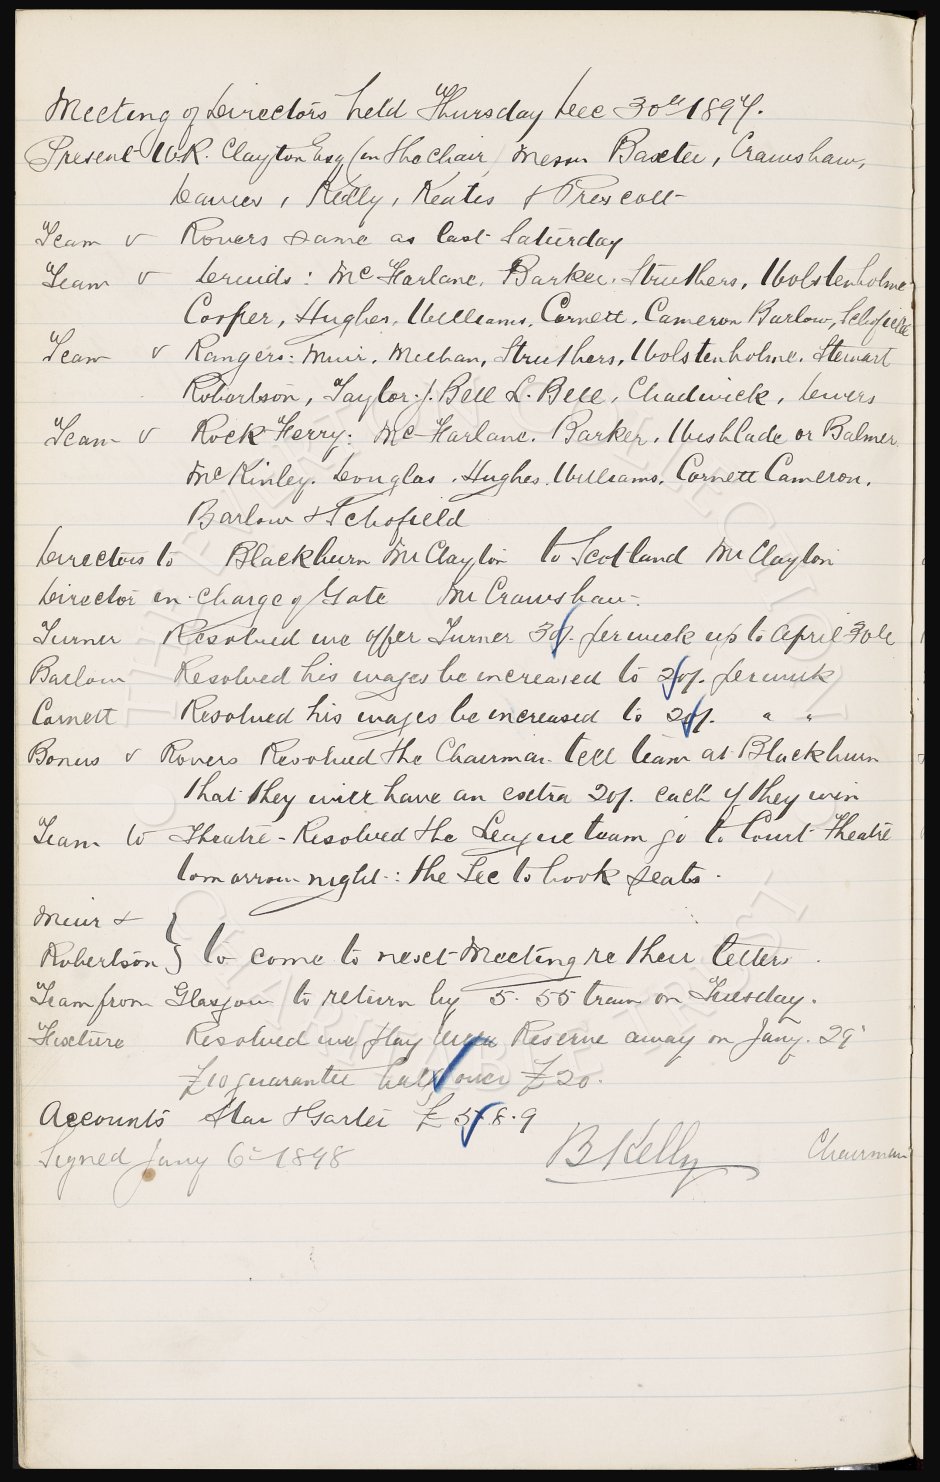 Meeting of Directors held Thursday Dec 30th 1897.
Present W.R. Clayton Esq (in the Chair) Messrs Baxter, Crawshaw,
Davies, Kelly, Keates & Prescott
Team v Rovers same as last Saturday
Team v Druids: McFarlane. Barker. Struthers, Wolstenholme
Cooper, Hughes, Williams. Cornett. Cameron Barlow, Schofield
Team v Rangers: Muir. Meehan, Struthers, Wolstenholme. Stewart
Robertson, Taylor. J. Bell L. Bell, Chadwick, Divers
Team v Rock Ferry: McFarlane. Barker. Wishlade or Balmer
McKinley. Douglas. Hughes. Williams. Cornett Cameron.
Barlow & Schofield
Directors to Blackburn Mr Clayton to Scotland Mr Clayton
Director in charge of Gate Mr Crawshaw.
Turner Resolved we offer Turner 30/. per week up to April 30th
Barlow Resolved his wages be increased to 20/. per week
Cornett Resolved his wages be increased to 20/. " "
Bonus v Rovers Resolved the Chairman tell team at Blackburn
that they will have an extra 20/. each if they win
Team to Theatre - Resolved the League team go to Court Theatre
tomorrow night: the Sec to book seats.
Muir &
Robertson } to come to next Meeting re their letters.
Team from Glasgow to return by 5.55 train on Tuesday.
Fixture Resolved we play Reserve away on Jany. 29
£10 guarantee half over £20.
Accounts Star & Garter £ 8.9
Signed Jany 6th 1898 B Kelly Chairman
THE EVERTON COLLECTION
CHARITABLE TRUST